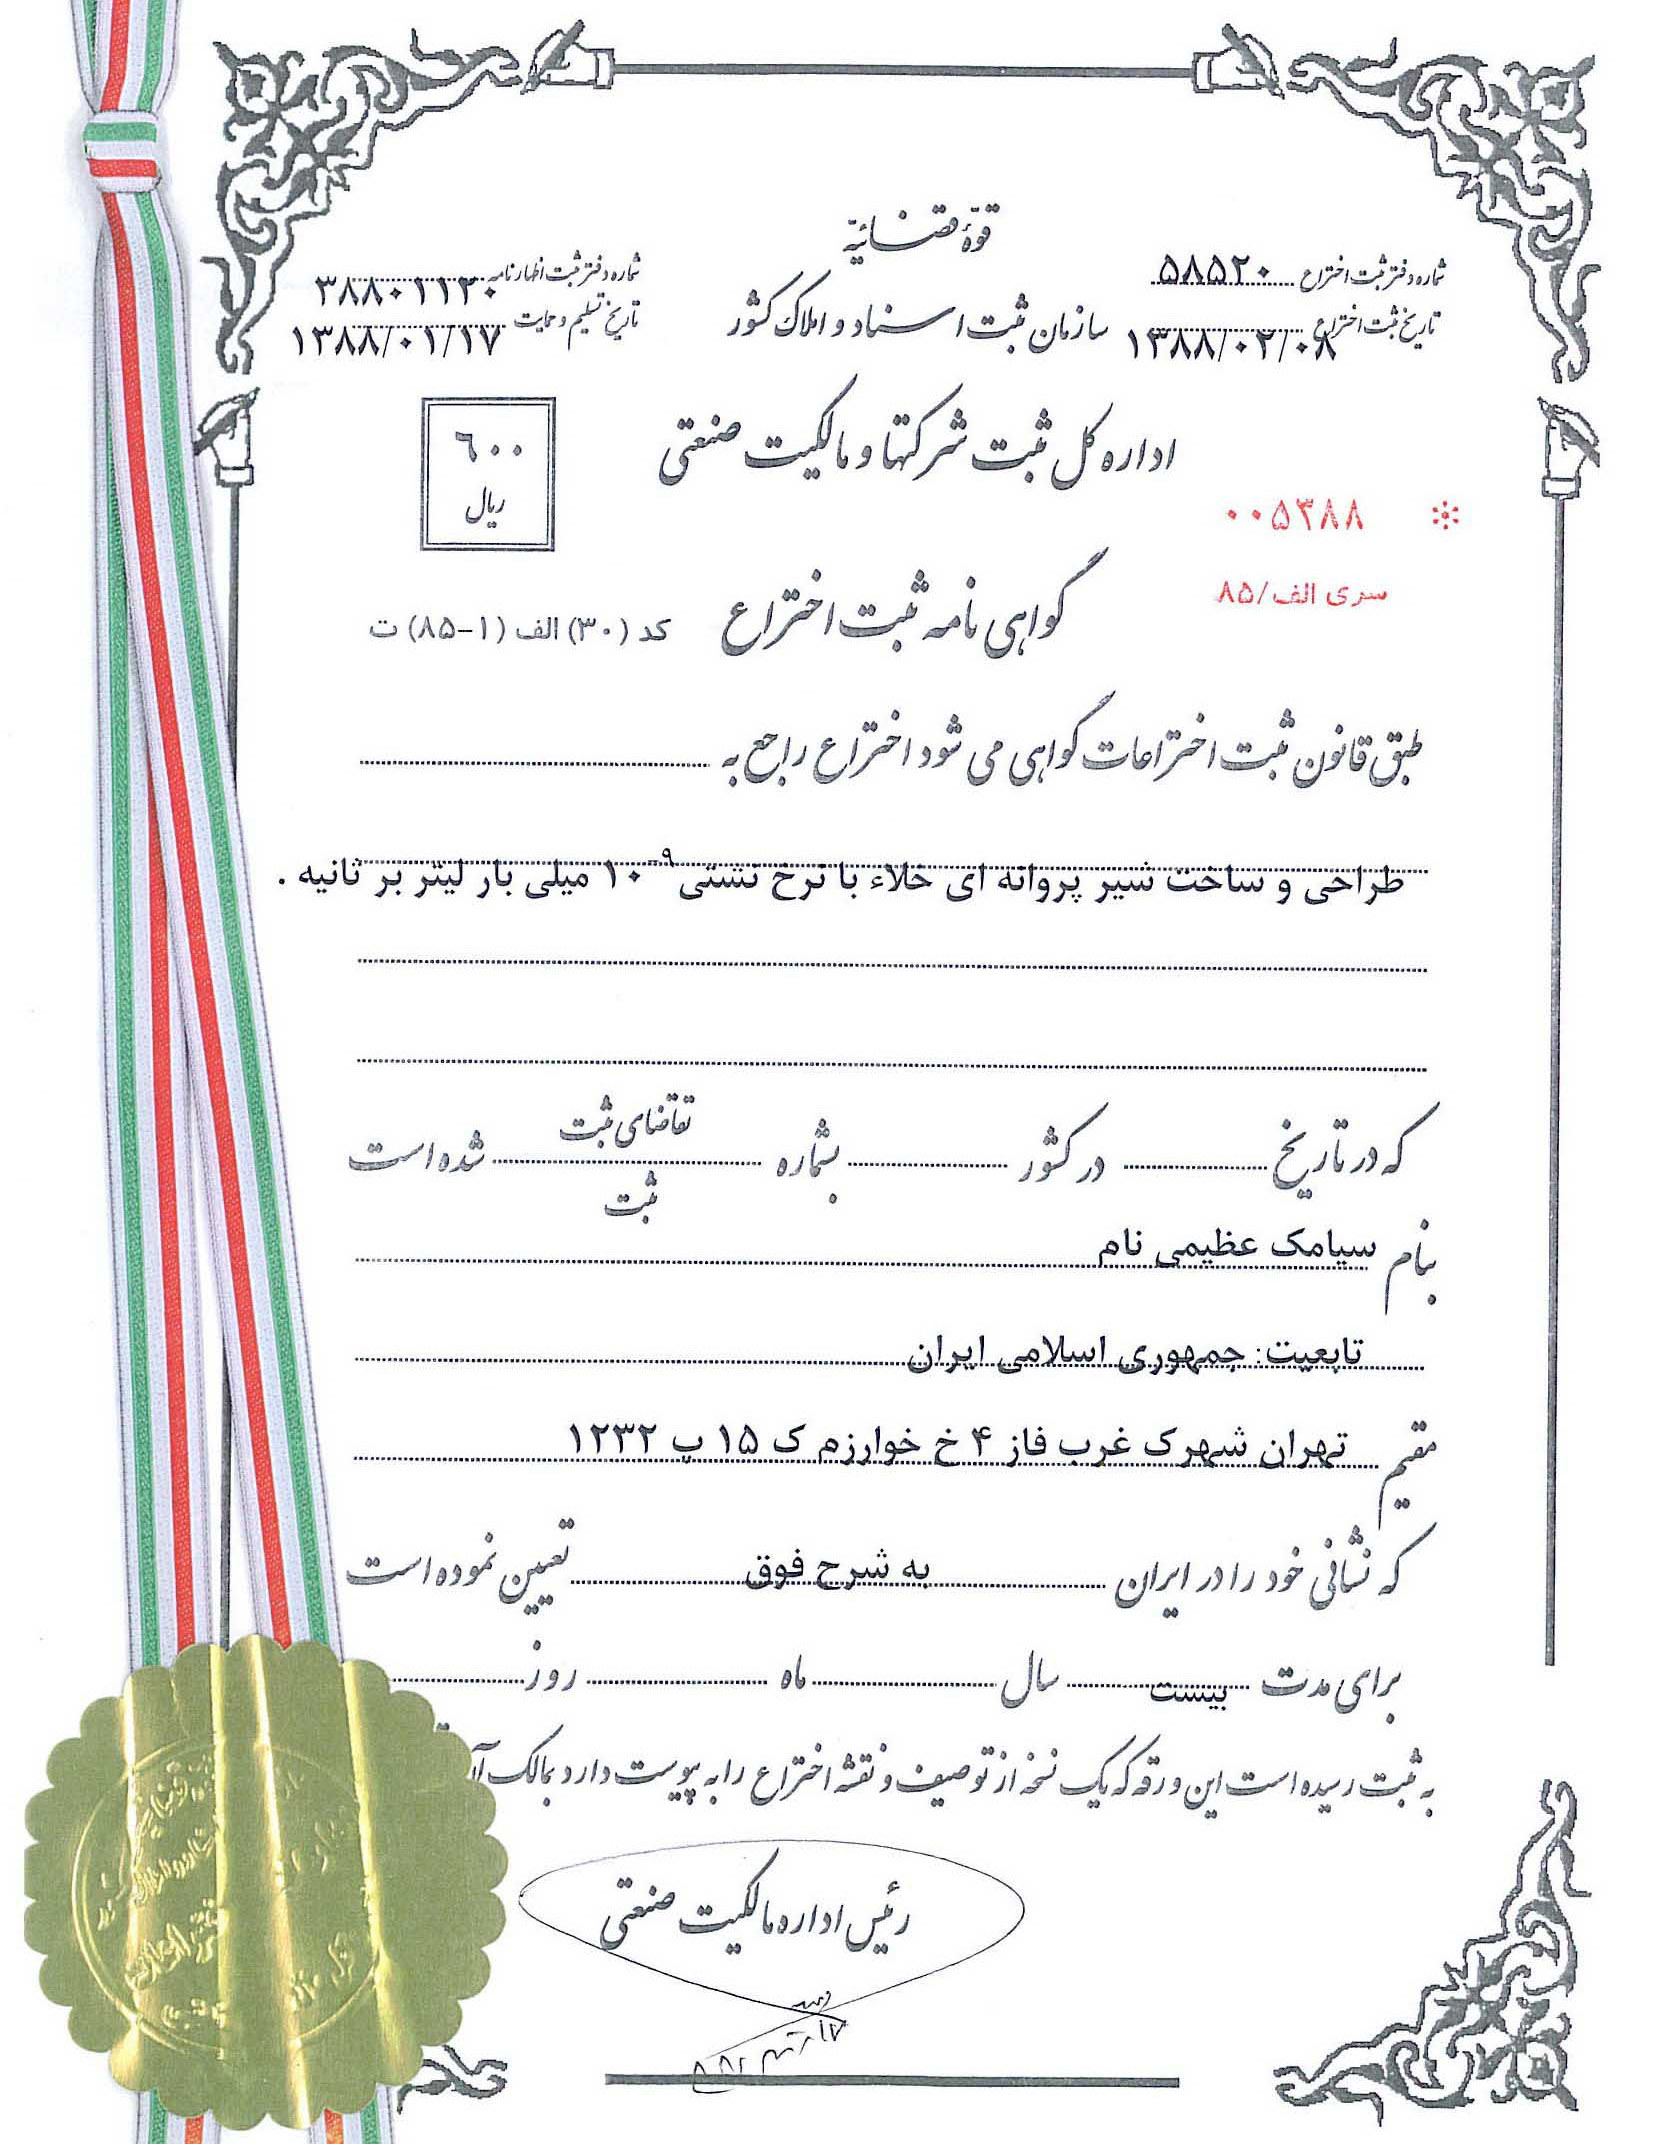 قوّهٔ قضائیّه
شماره دفتر ثبت اختراع ۵۸۵۲۰
شماره دفتر ثبت اظهارنامه ۳۸۸۰۱۱۲۰
سازمان ثبت اسناد و املاک کشور
تاریخ ثبت اختراع ۱۳۸۸/۰۲/۰۸
تاریخ تسلیم و حمایت ۱۳۸۸/۰۱/۱۷
اداره کل ثبت شرکتها و مالکیت صنعتی
۶۰۰
ریال
۰۰۵۳۸۸
سری الف/۸۵
گواهی نامه ثبت اختراع
کد (۳۰) الف (۱-۸۵) ت
طبق قانون ثبت اختراعات گواهی می شود اختراع راجع به
طراحی و ساخت شیر پروانه ای خلاء با نرخ نشتی ۱۰⁻⁹ میلی بار لیتر بر ثانیه .
که در تاریخ در کشور بشماره تقاضای ثبت شده است
ثبت
بنام سیامک عظیمی نام
تابعیت: جمهوری اسلامی ایران
مقیم تهران شهرک غرب فاز ۴ خ خوارزم ک ۱۵ پ ۱۲۳۲
که نشانی خود را در ایران به شرح فوق تعیین نموده است
برای مدت بیست سال ماه روز
به ثبت رسیده است این ورقه که یک نسخه از توصیف و نقشه اختراع را به پیوست دارد بمالک آن
رئیس اداره مالکیت صنعتی